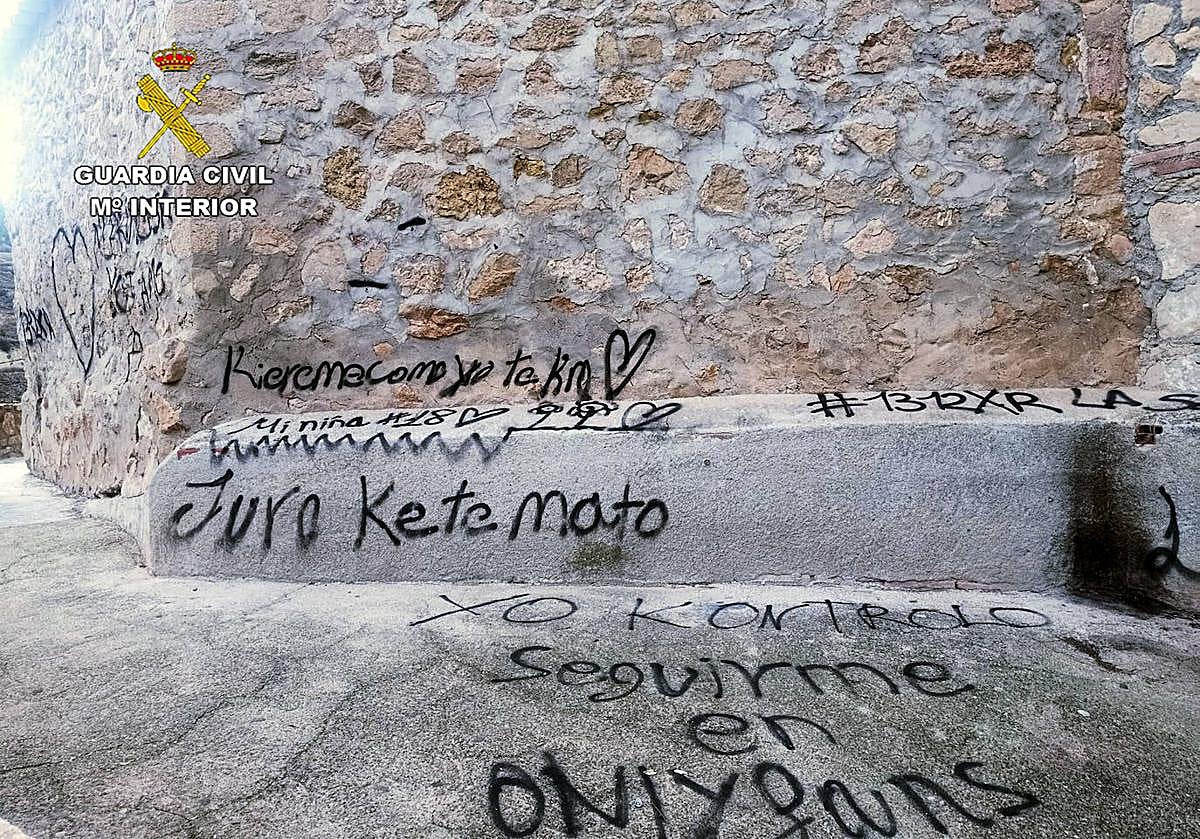 GUARDIA CIVIL
Mº INTERIOR
KiereMecomo yo te kiro
Mi niña #18
#1312XR LAS
Juro Kete mato
XO KONTROLO
Seguirme
en
ONLYfans